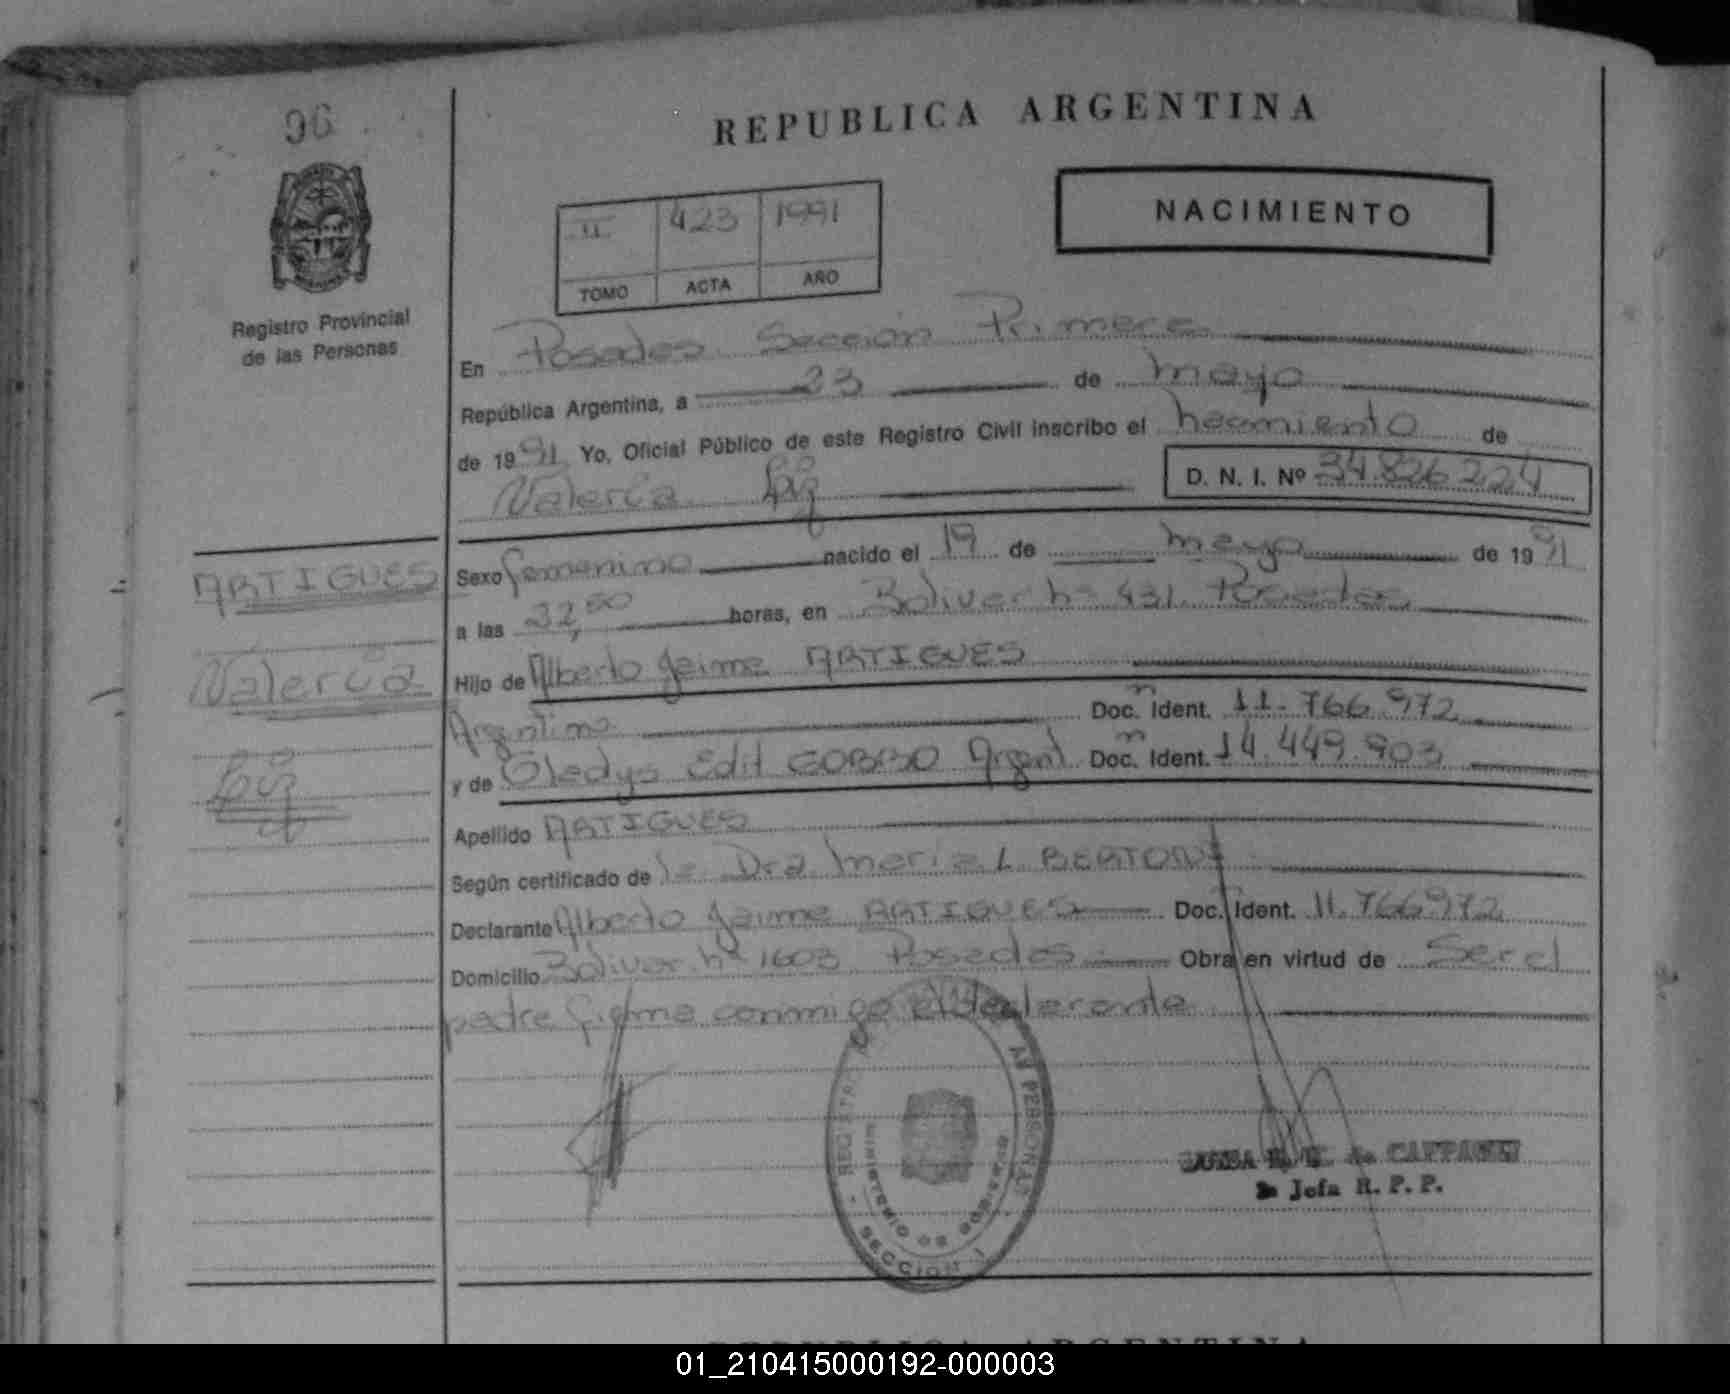 96
REPUBLICA ARGENTINA
NACIMIENTO
II 423 1991
TOMO ACTA AÑO
Registro Provincial
de las Personas
En Posadas Sección Primera
República Argentina, a 23 de mayo
de 1991 Yo, Oficial Público de este Registro Civil inscribo el nacimiento de
Valeria D. N. I. Nº 34.826.224
ARTIGUES
Valeria
Sexo femenino nacido el 19 de mayo de 1991
a las horas, en Bolivar nº 431 Posadas
Hijo de Alberto Jaime ARTIGUES
Argentino Doc. Ident. 11.766.972
y de Gladys Edit GOBBO Argent. Doc. Ident. 14.449.903
Apellido ARTIGUES
Según certificado de la Dra. Maria L. BERTONI
Declarante Alberto Jaime ARTIGUES Doc. Ident. 11.766972
Domicilio Bolivar nº 1603 Posadas Obra en virtud de Ser el
padre firma conmigo el declarante
MINISTERIO DE GOBIERNO
SECCION I
de
Jefa R. P. P.
REPUBLICA ARGENTINA
01_210415000192-000003